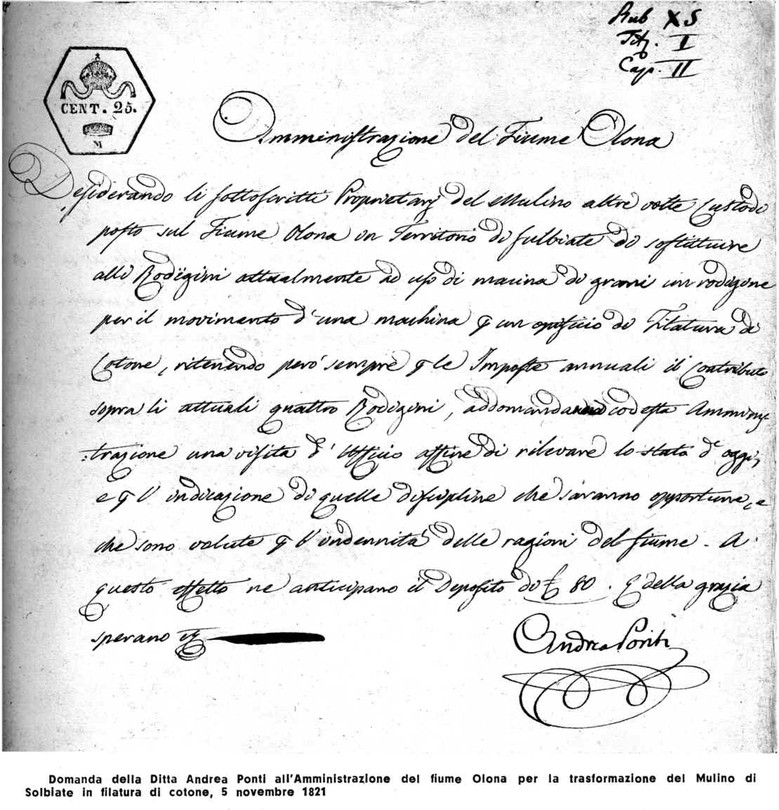 Rub XS
Tit. I
Cap. II
CENT. 25.
M
Amministrazione del Fiume Olona
Desiderando li sottoscritti Proprietarj del Mulino altre volte Custodi
posto sul Fiume Olona in Territorio di Sulbiate di sostituire
alli Rodigini attualmente ad uso di macina di grani un rodigine
per il movimento d'una machina p un opificio di Filatura di
Cotone, ritenendo però sempre p le Imposte annuali il Contributo
sopra li attuali quattro Rodigini, addomanda codesta Amminis
-trazione una visita d'Ufficio affine di rilevare lo stato d'oggi,
e p l'indicazione di quelle discipline che saranno opportune, e
che sono volute p l'indennità delle ragioni del fiume. A
questo effetto ne anticipano il Deposito di £ 80. E della grazia
sperano
Andrea Ponti
Domanda della Ditta Andrea Ponti all'Amministrazione del fiume Olona per la trasformazione del Mulino di
Solbiate in filatura di cotone, 5 novembre 1821